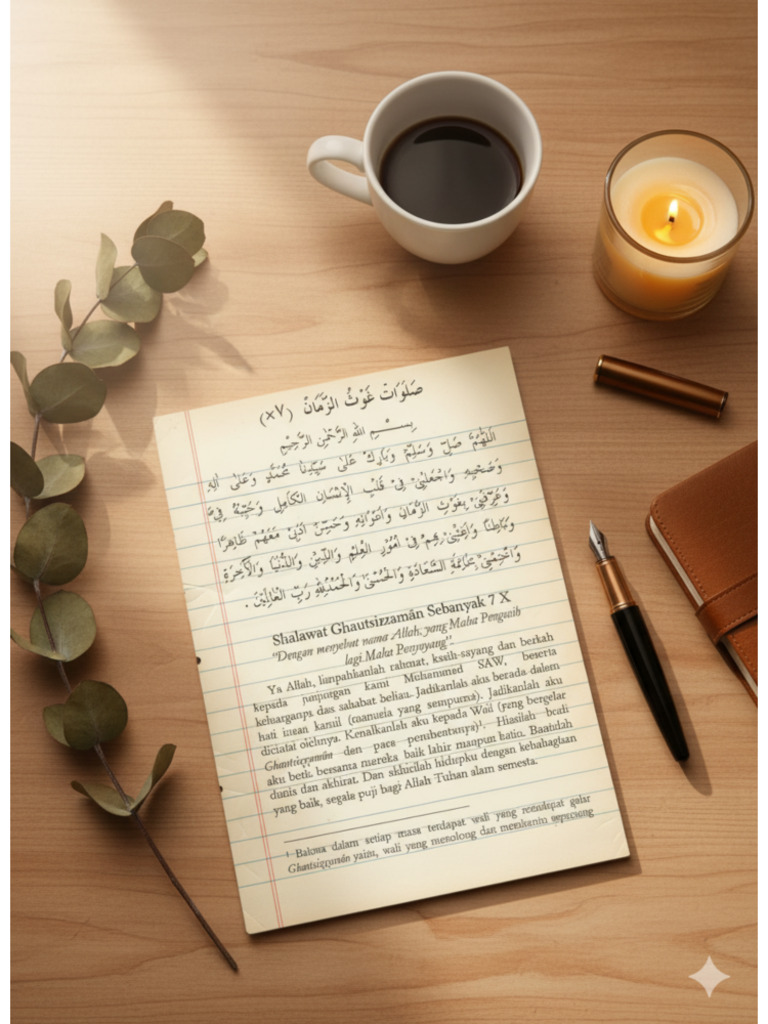 صَلَوَاتُ غَوْثُ الزَّمَانْ (٧×)
بِسْمِ اللهِ الرَّحْمٰنِ الرَّحِيْمِ
اَللّٰهُمَّ صَلِّ وَسَلِّمْ وَبَارِكْ عَلٰى سَيِّدِنَا مُحَمَّدٍ وَعَلٰى اٰلِهِ
وَصَحْبِهِ وَاجْعَلْنِيْ فِيْ قَلْبِ الْإِنْسَانِ الْكَامِلِ
بِغَوْثِ الزَّمَانِ وَاَعْوَانِهِ مَعَهُمْ ظَاهِرًا
وَبَاطِنًا فِيْ اُمُوْرِ الْعِلْمِ وَالدِّيْنِ وَالدُّنْيَا وَالْآخِرَةِ
السَّعَادَةِ وَالْحُسْنٰى وَالْحَمْدُ لِلّٰهِ رَبِّ الْعَالَمِيْنَ .
Shalawat Ghautsizzamán Sebanyak 7 X
"Dengan menyebut nama Allah, yang Maha
lagi Maha Penyayang".
Ya Allah, limpahkanlah rahmat, kasih-sayang dan berkah
kepada junjungan kami Muhammed SAW, beserta
keluarganya dan sahabat beliau. Jadikanlah aku berada dalam
hati kamil (manusia yang sempurna). Jadikanlah aku
dicintai olehnya. Kenalkanlah aku kepada Wali (yang bergelar
Ghautsizzamán dan para Hiasilah
aku bersama mereka baik lahir maupun batin.
dunia dan akhirat. Dan akhirilah hidupku dengan kebahagiaan
yang baik, segala puji bagi Allah Tuhan alam semesta.
¹ Bahwa dalam setiap masa terdapat wali yang mendapat gelar
Ghautsizzamán yaitu, wali yang menolong dan